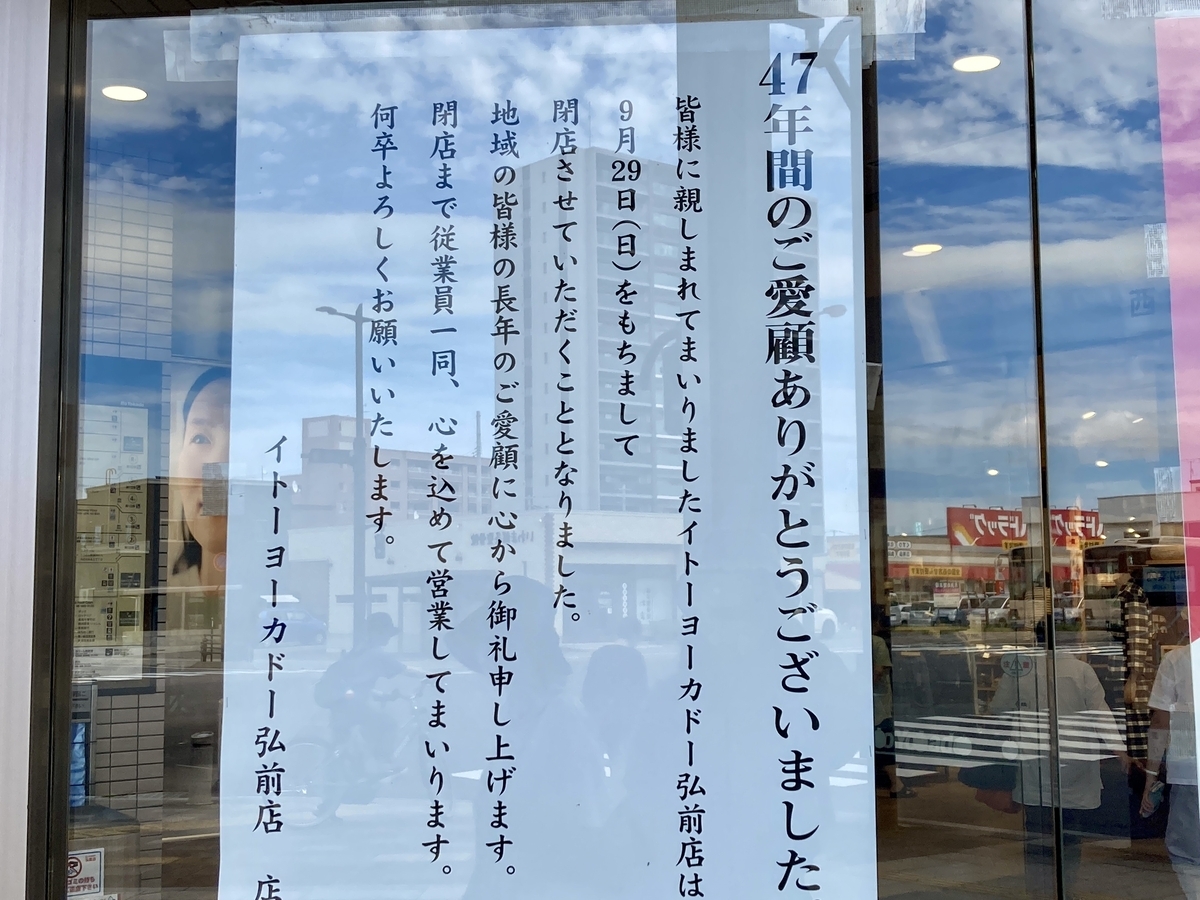 47年間のご愛顧ありがとうございました。
皆様に親しまれてまいりましたイトーヨーカドー弘前店は
9月29日(日)をもちまして
閉店させていただくこととなりました。
地域の皆様の長年のご愛顧に心から御礼申し上げます。
閉店まで従業員一同、心を込めて営業してまいります。
何卒よろしくお願いいたします。
イトーヨーカドー弘前店 店
ドラッグ
ドラッグ